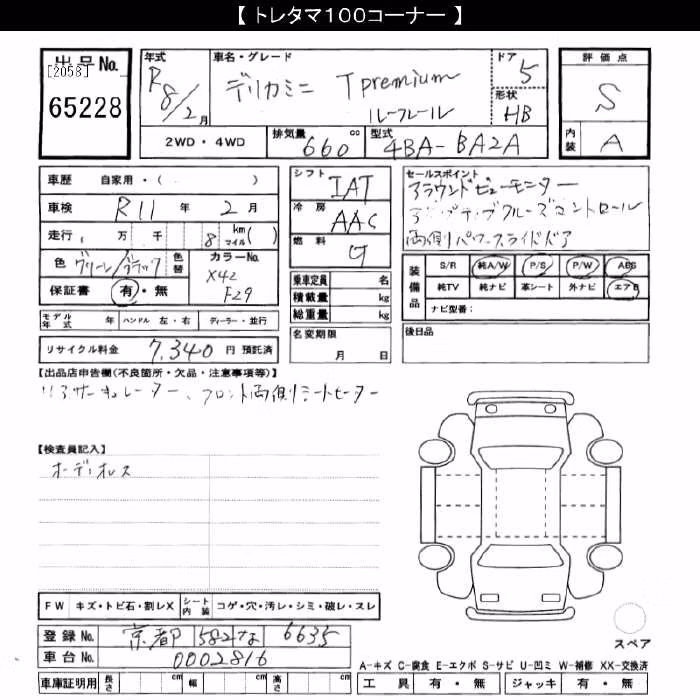 【トレタマ100コーナー】
出品No.
[2058]
65228
年式
R8/2月
車名・グレード
デリカミニ T premium
ルーフレール
ドア
5
形状
HB
評価点
S
内装
A
2WD・4WD
排気量 660 cc
型式 4BA-BA2A
車歴 自家用・( )
車検 R11年 2月
走行 万 千 8 km マイル( )
色 グリーン/ブラック
色替
カラーNo.
X42
F29
保証書 有・無
モデル年式 年 ハンドル 左・右 ディーラー・並行
リサイクル料金 7,340円 預託済
シフト IAT
冷房 AAC
燃料 G
乗車定員 名
積載量 kg
総重量 kg
名変期限
月 日
セールスポイント
アラウンドビューモニター
アダプティブクルーズコントロール
両側パワースライドドア
装備品
S/R 純A/W P/S P/W ABS
純TV 純ナビ 革シート 外ナビ エアB
ナビ型番:
後日品
【出品店申告欄(不良箇所・欠品・注意事項等)】
リアサーキュレーター、フロント両側シートヒーター
【検査員記入】
オーディオレス
FW キズ・トビ石・割レX シート内装 コゲ・穴・汚レ・シミ・破レ・スレ
登録No. 京都 582 な 6635
車台No. 0002816
車庫証明用 長さ cm 幅 cm 高さ cm
スペア
A-キズ C-腐食 E-エクボ S-サビ U-凹ミ W-補修 XX-交換済
工具 有・無 ジャッキ 有・無